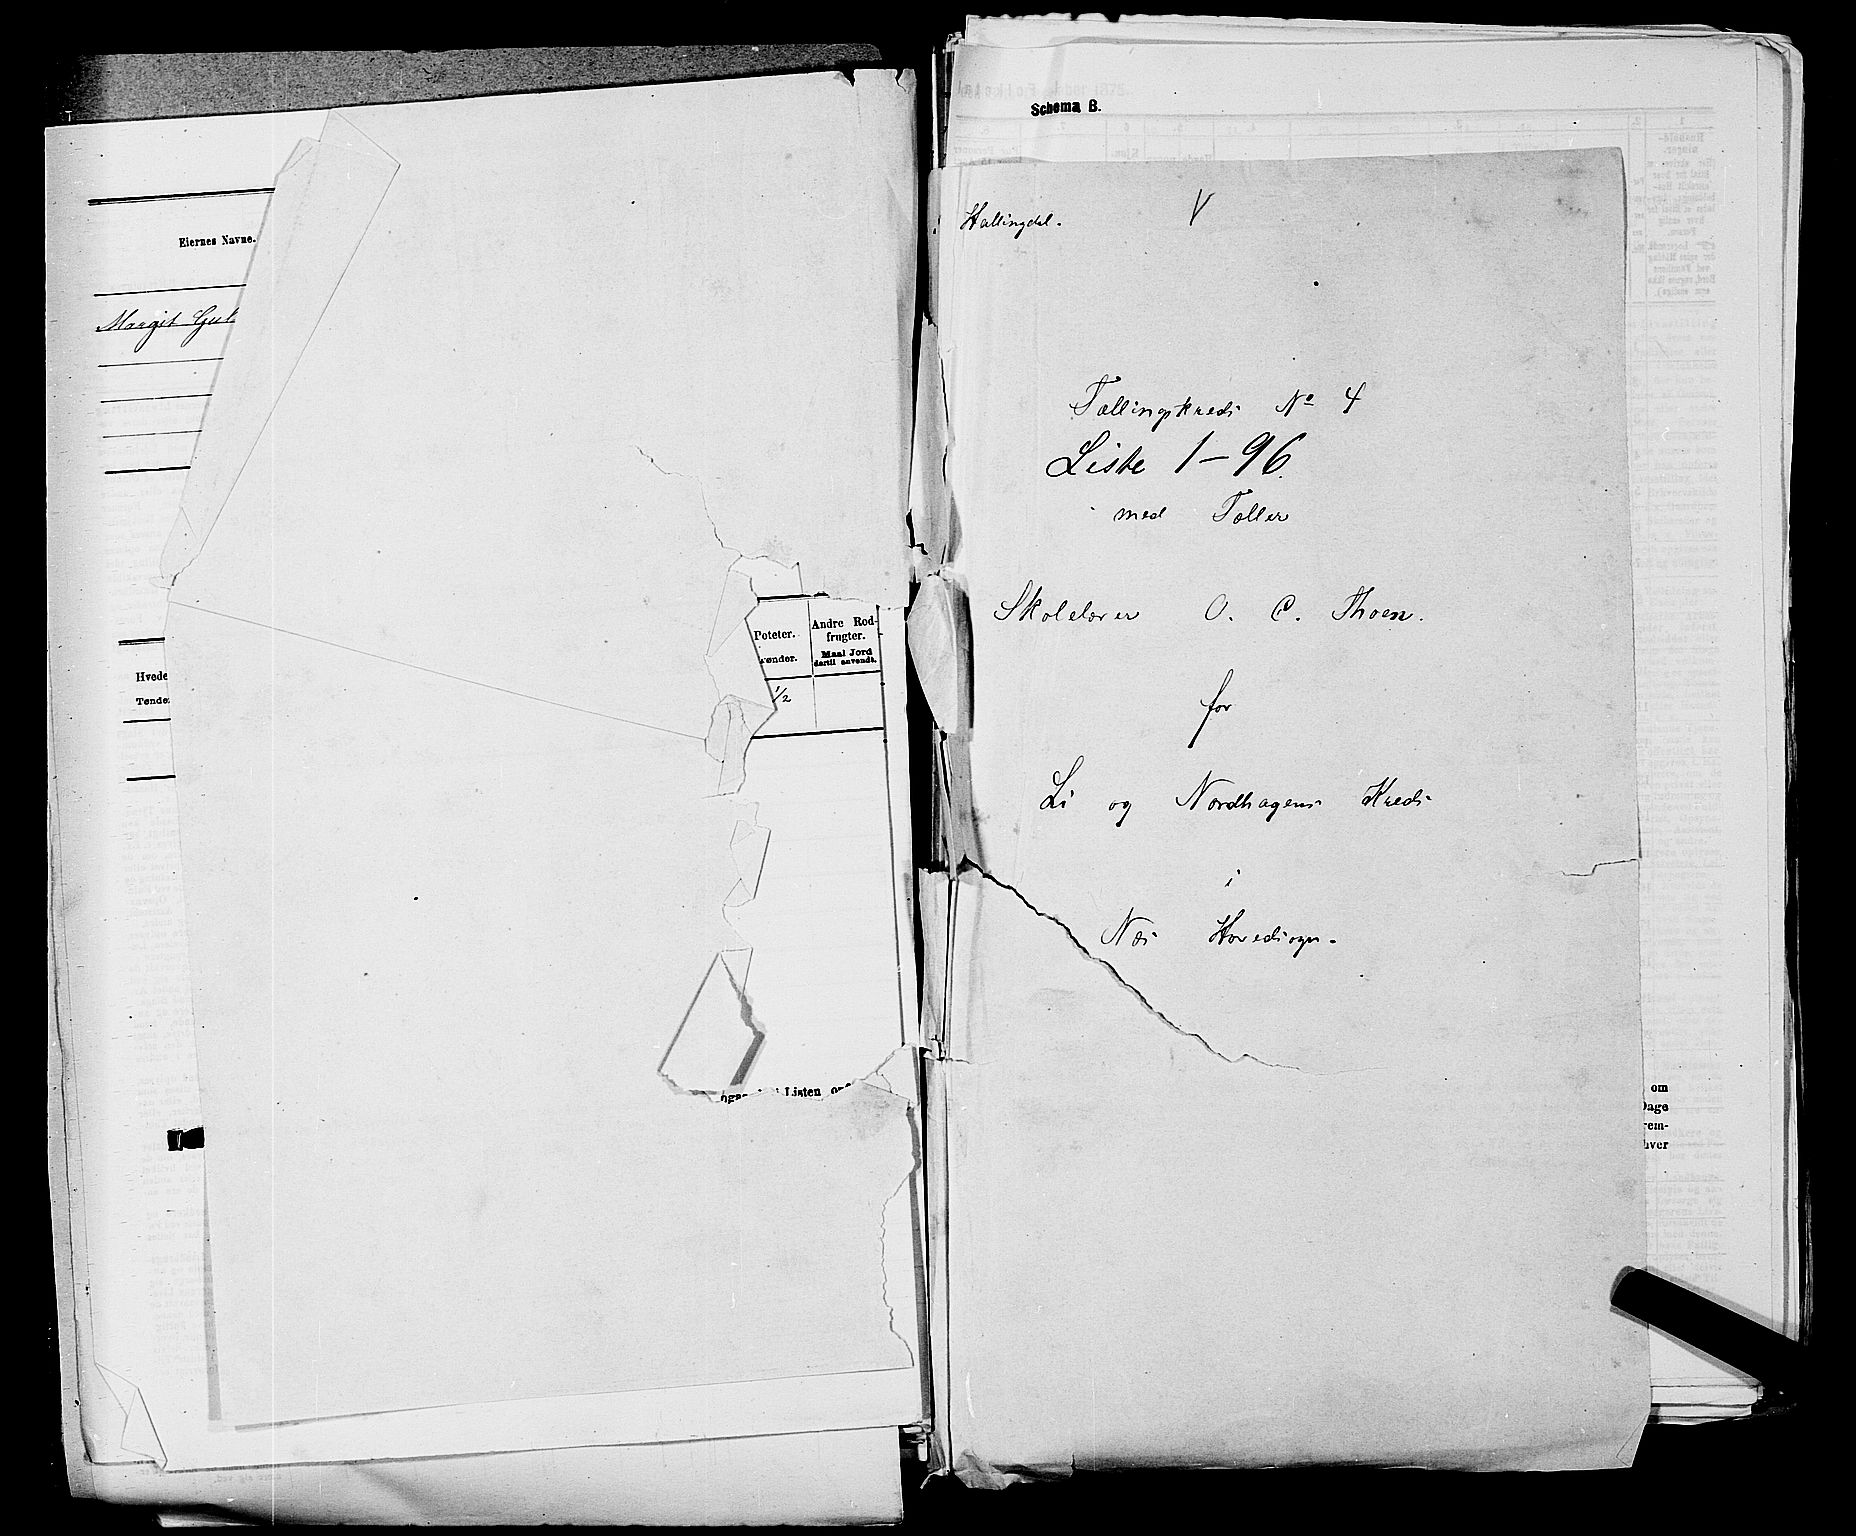 Eiernes Navne.
Margit Gul
Poteter.
Andre Rod-
frugter.
Maal Jord
dertil anvendt.
ønder.
1/2
Hvede
Tønde
Listen
Schema B.
Hallingdal.
V
Tællingskreds No 4
Liste 1-96.
med Tæller
Skolelærer O. C. Thoen.
for
Li og Nordhagens Kreds
i
Næs Hovedsogn.
om
Dage
rem-
hver